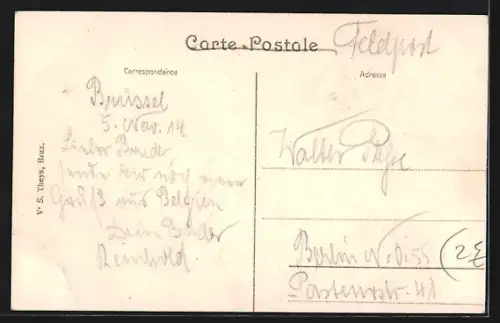 Carte Postale
Feldpost
Correspondance
Adresse
Brüssel
5. Nov. 14
Lieber Bruder
sende dir noch einen
Gruß aus Belgien
Dein Bruder
Reinhold.
Vᵉ S. Theys, Brux.
Walter
Berlin N.O. 55
Pasteurstr. 41